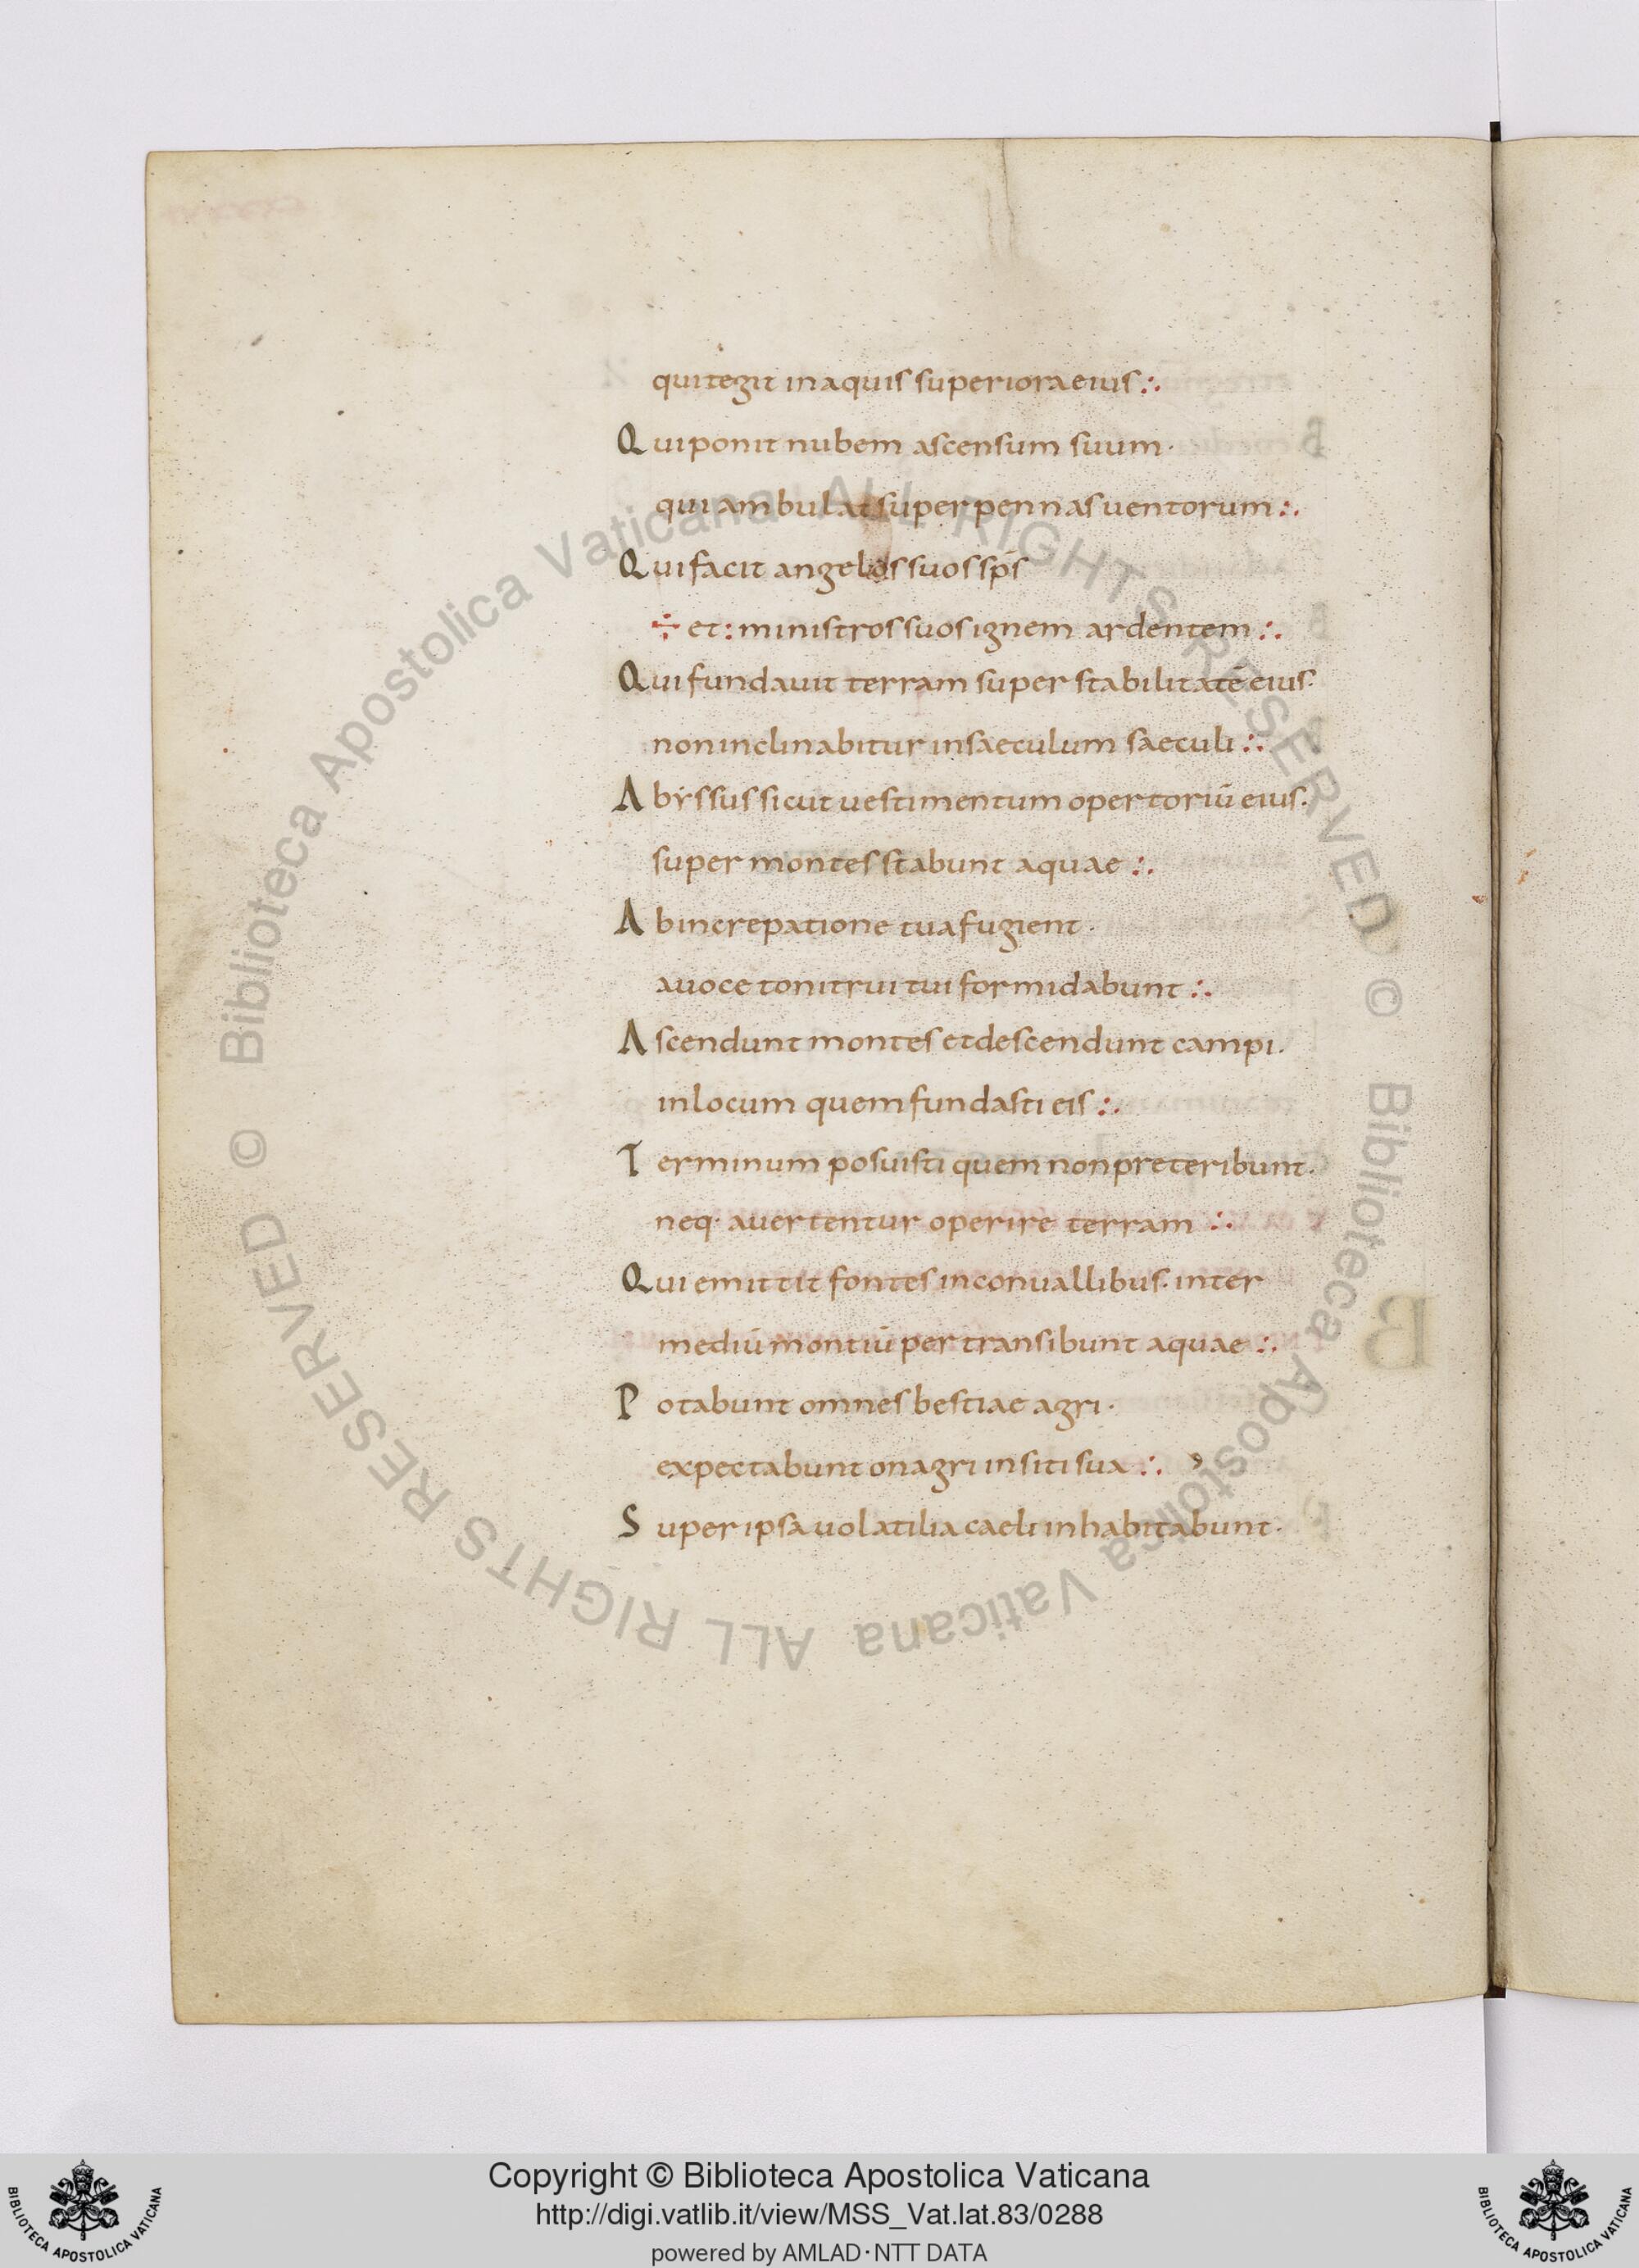 qui tegit in aquis superiora eius :.
Qui ponit nubem ascensum suum ·
qui ambulat super pennas uentorum :.
Qui facit angelos suos sp̄s
÷ et : ministros suos ignem ardentem :.
Qui fundauit terram super stabilitatē eius ·
non inclinabitur in saeculum saeculi :.
Abyssus sicut uestimentum opertoriū eius ·
super montes stabunt aquae :.
Ab increpatione tua fugient ·
a uoce tonitrui tui formidabunt :.
Ascendunt montes et descendunt campi ·
in locum quem fundasti eis :.
Terminum posuisti quem non preteribunt ·
neq· auertentur operire terram :.
Qui emittit fontes in conuallibus · inter
mediū montiū pertransibunt aquae :.
Potabunt omnes bestiae agri ·
expectabunt onagri in siti sua :.
Super ipsa uolatilia caeli inhabitabunt ·
© Biblioteca Apostolica Vaticana ALL RIGHTS RESERVED © Biblioteca Apostolica Vaticana ALL RIGHTS RESERVED
Copyright © Biblioteca Apostolica Vaticana
http://digi.vatlib.it/view/MSS_Vat.lat.83/0288
powered by AMLAD·NTT DATA
BIBLIOTECA APOSTOLICA VATICANA
BIBLIOTECA APOSTOLICA VATICANA